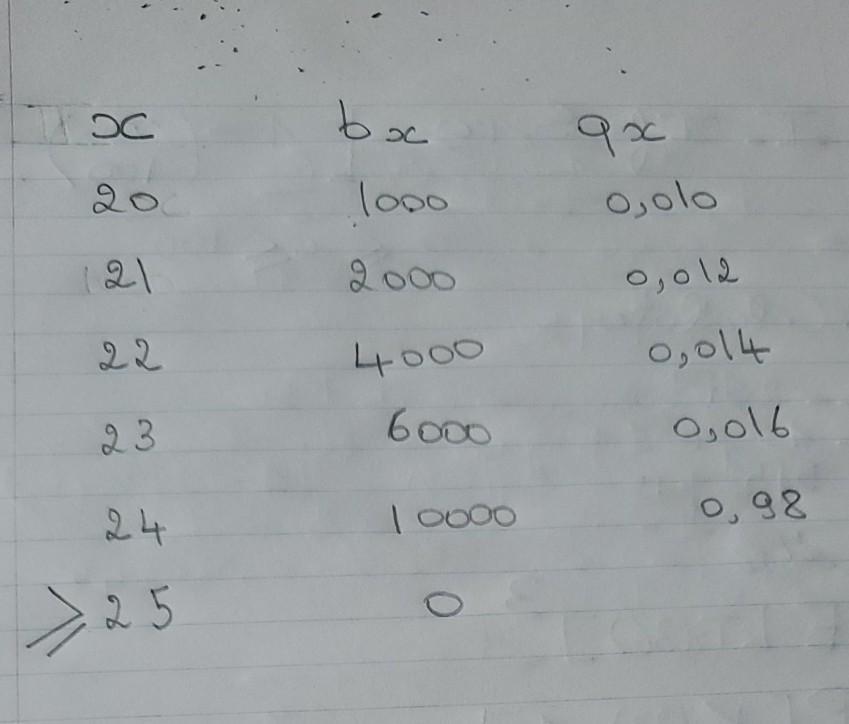 x bx qx
20 1000 0,010
21 2000 0,012
22 4000 0,014
23 6000 0,016
24 10000 0,98
⩾25 0